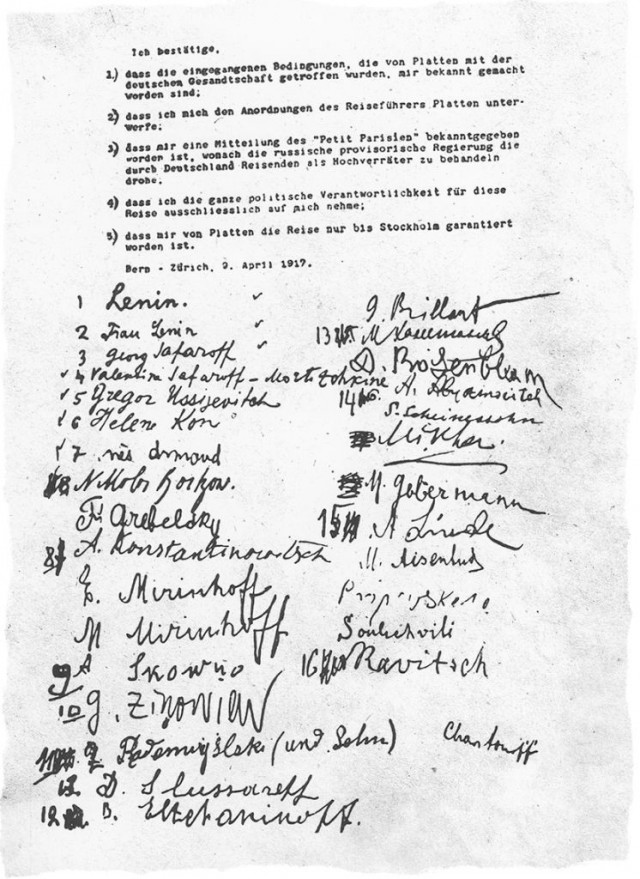 Ich bestätige,
1) dass die eingegangenen Bedingungen, die von Platten mit der
deutschen Gesandtschaft getroffen wurden, mir bekannt gemacht
worden sind;
2) dass ich mich den Anordnungen des Reiseführers Platten unter-
werfe;
3) dass mir eine Mitteilung des "Petit Parisien" bekanntgegeben
worden ist, wonach die russische provisorische Regierung die
durch Deutschland Reisenden als Hochverräter zu behandeln
drohe;
4) dass ich die ganze politische Verantwortlichkeit für diese
Reise ausschliesslich auf mich nehme;
5) dass mir von Platten die Reise nur bis Stockholm garantiert
worden ist.
Bern - Zürich, 9. April 1917.
1 Lenin.
2 Frau Lenin
3 Georg Safaroff
4 Valentina Safaroff - Mortotchkine
5 Gregor Ussijevitch
6 Helene Kon
7 Inès Armand
8 N.
F. Grebelsky
A. Konstantinowitsch
E. Mirinhoff
M Mirinhoff
9 A Skowno
10 G. ZINOWIEW
11 Radomyslski (und Sohn)
D. Slussareff
12 B. Eltchaninoff.
G. Brillant
13 M
D. Rosenblum
14 A. Abramovitch
S. Scheinessohn
M. Gobermann
15 A Linde
M. Aisenhud
Soulichvili
16 Ravitsch
Charitonoff